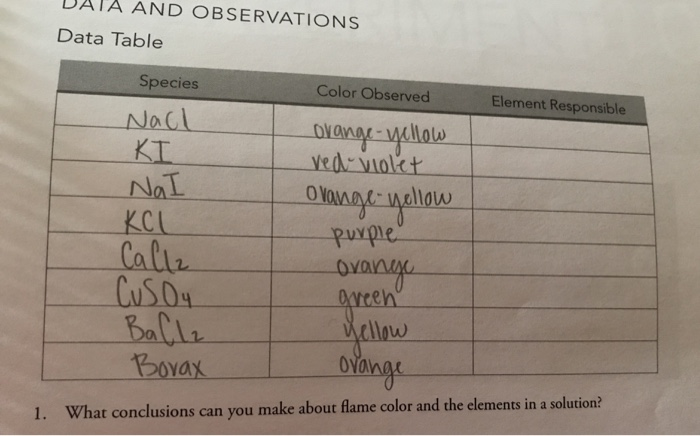 DATA AND OBSERVATIONS
Data Table
Species Color Observed Element Responsible
NaCl orange-yellow
KI red-violet
NaI orange-yellow
KCl purple
CaCl2 orange
CuSO4 green
BaCl2 yellow
Borax orange
1. What conclusions can you make about flame color and the elements in a solution?